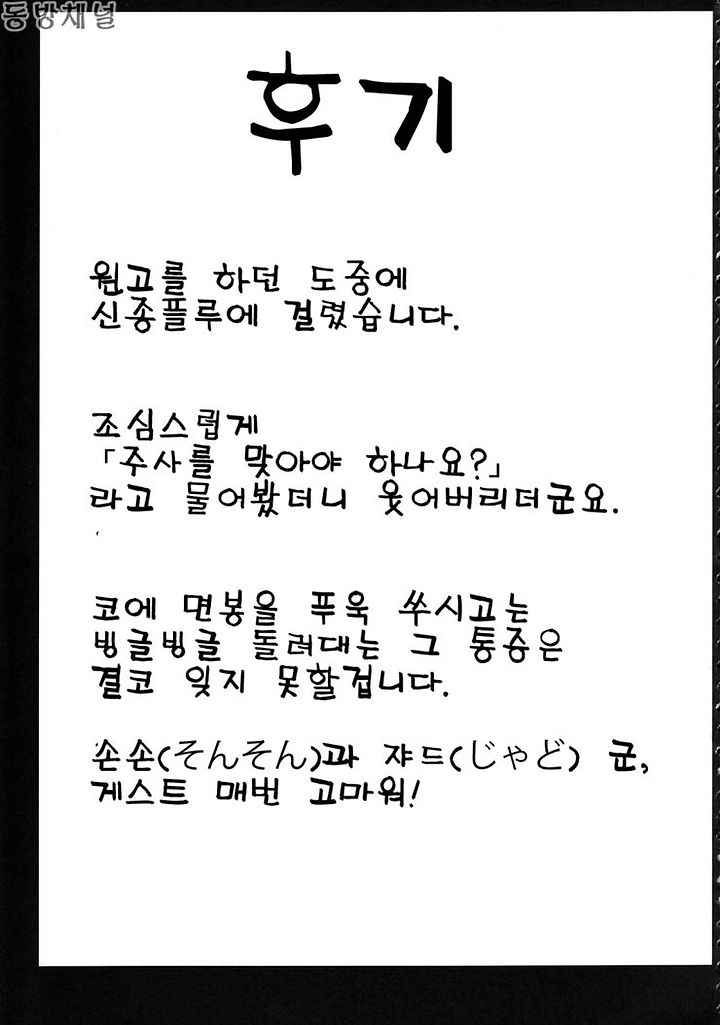 동방채널
후기
원고를 하던 도중에
신종플루에 걸렸습니다.
조심스럽게
「주사를 맞아야 하나요?」
라고 물어봤더니 웃어버리더군요.
코에 면봉을 푸욱 쑤시고는
빙글빙글 돌려대는 그 통증은
결코 잊지 못할겁니다.
손손(そんそん)과 쟈드(じゃど) 군,
게스트 매번 고마워!